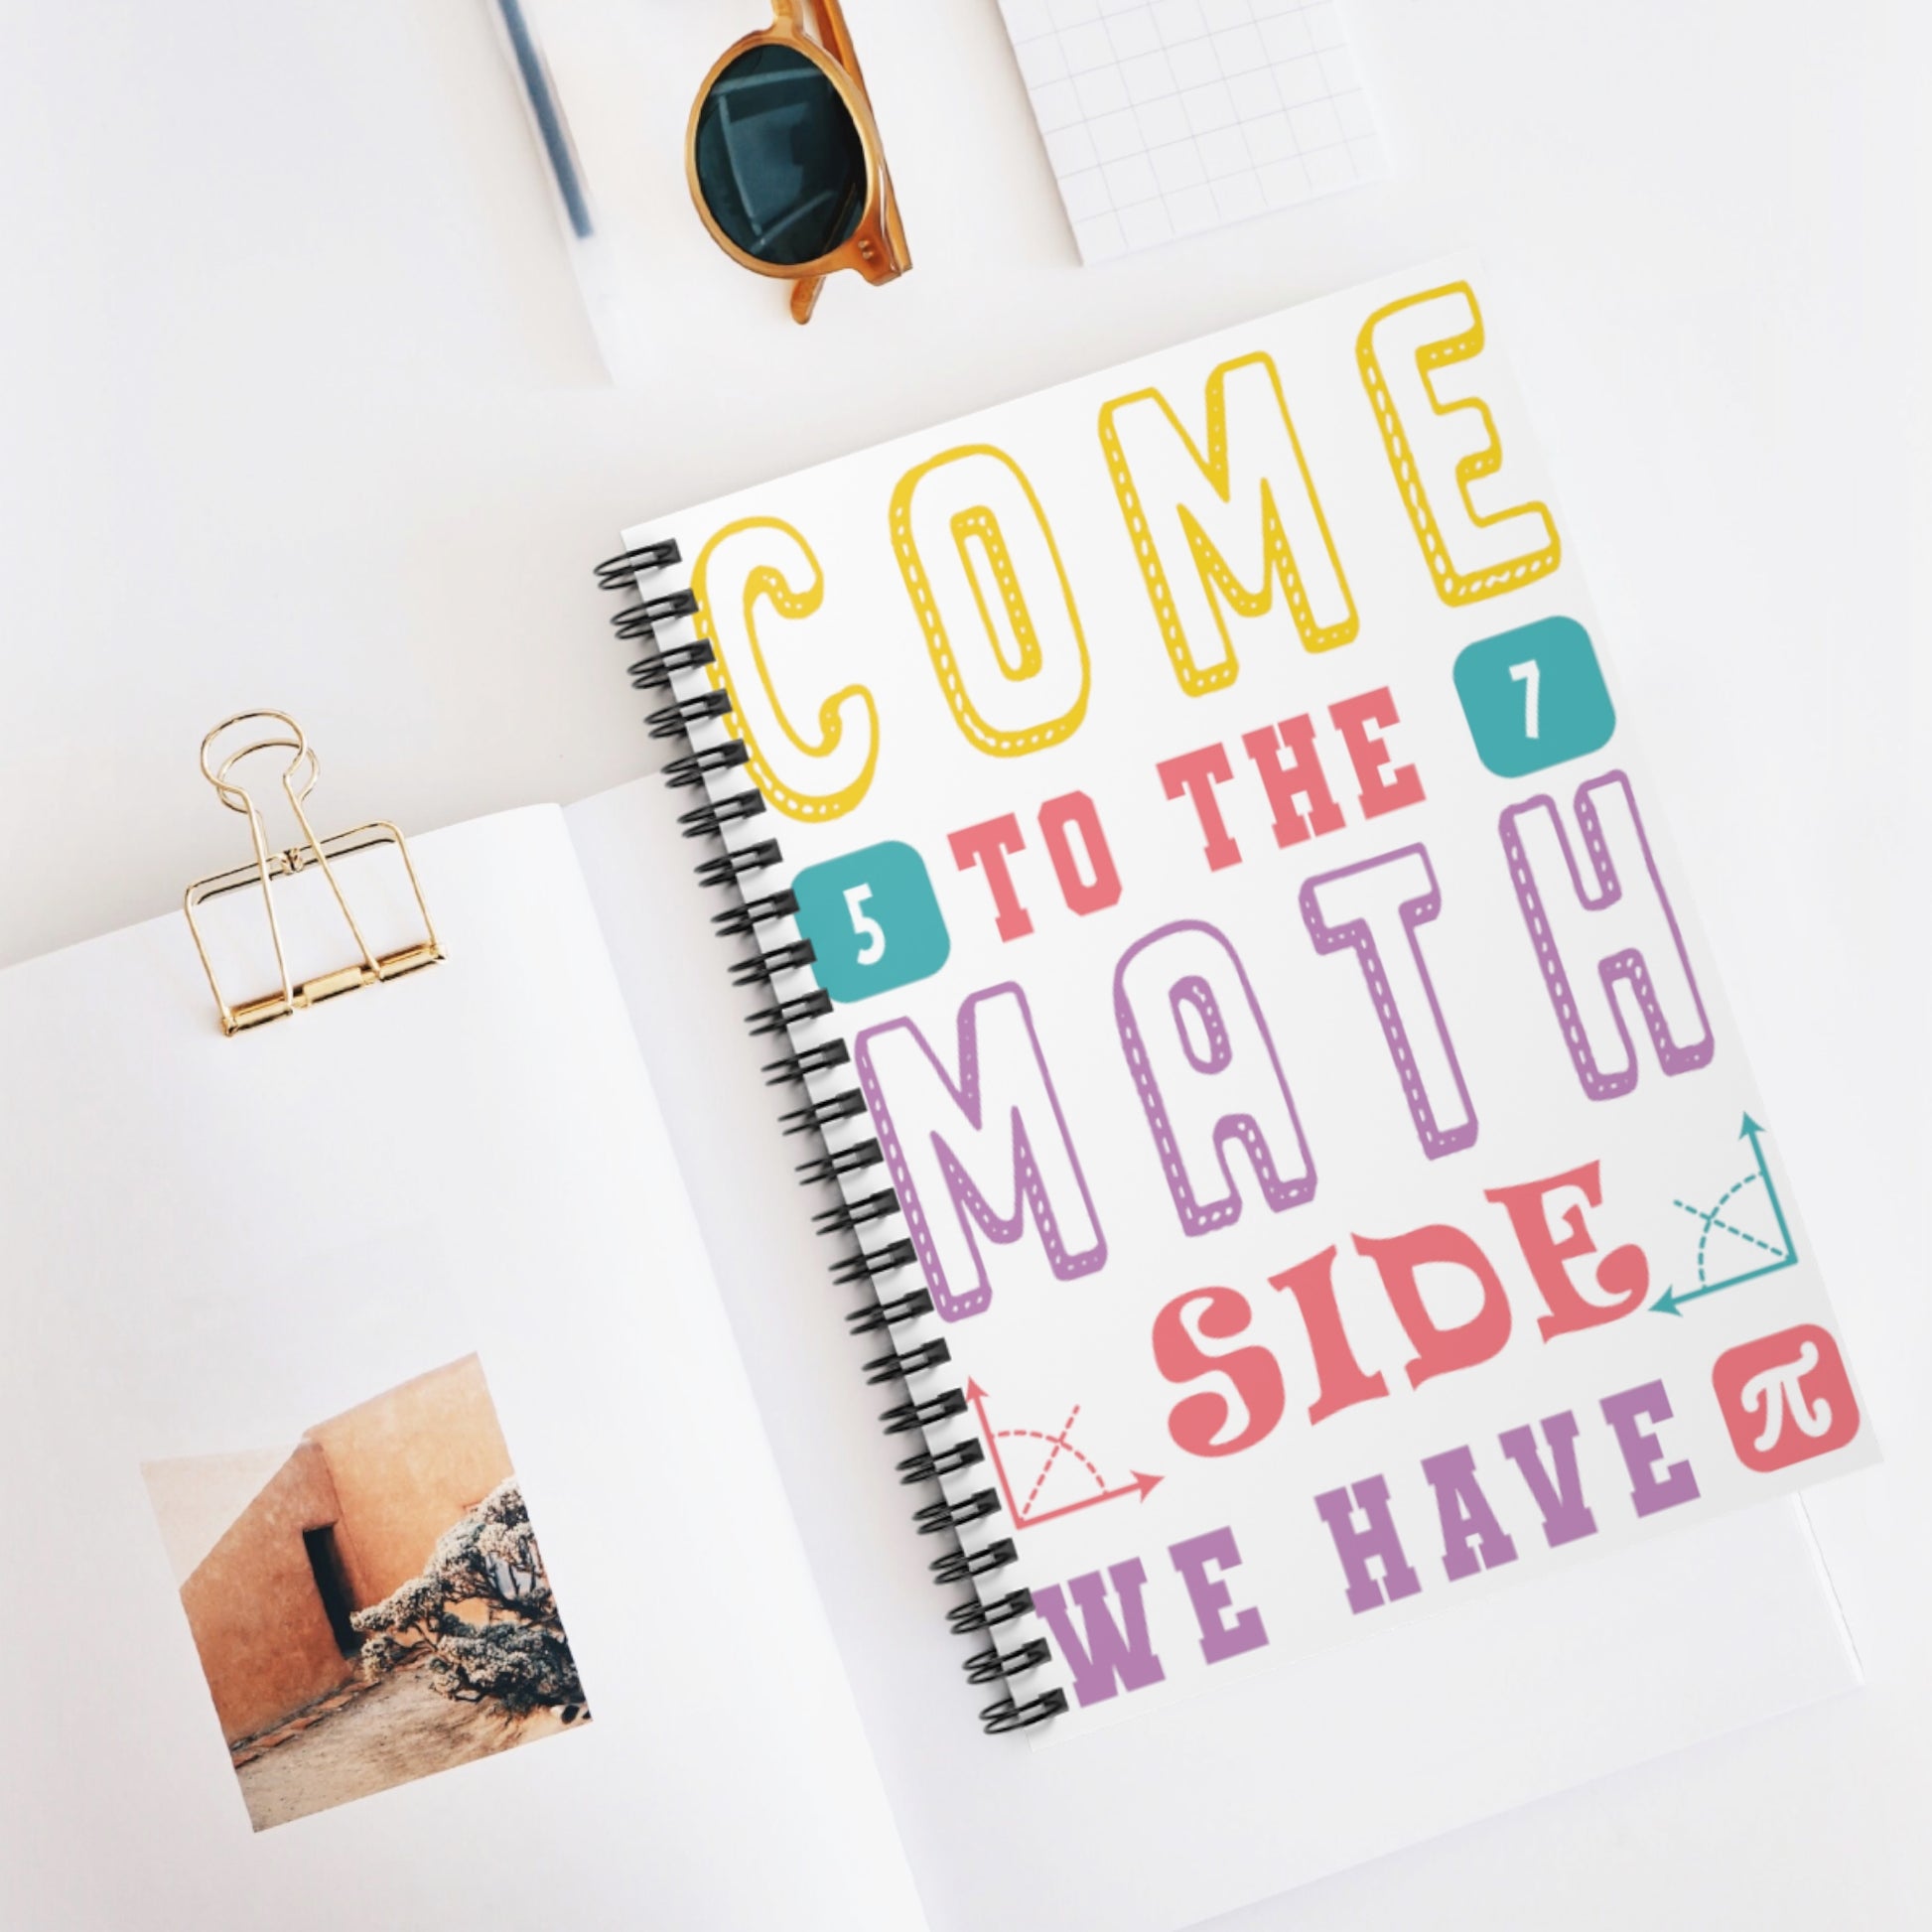 COME
5 TO THE 7
MATH
SIDE
WE HAVE π